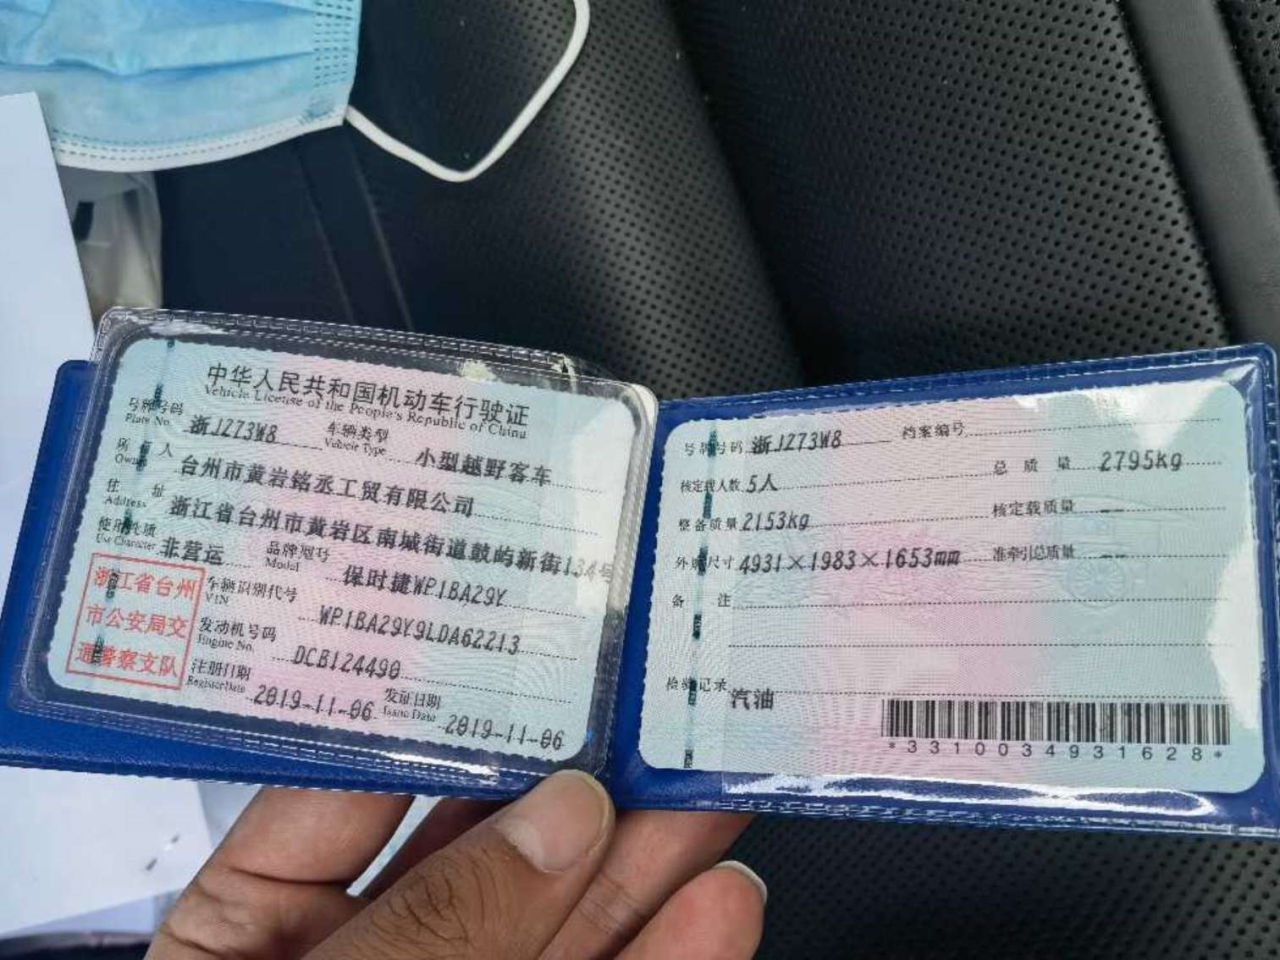 中华人民共和国机动车行驶证
Vehicle License of the People's Republic of China
号牌号码 浙JZ73W8 车辆类型 小型越野客车
Plate No. Vehicle Type
所有人 台州市黄岩铭丞工贸有限公司
Owner
住址 浙江省台州市黄岩区南城街道鼓屿新街134号
Address
使用性质 非营运 品牌型号 保时捷WP1BA29Y
Use Character Model
浙江省台州
市公安局交
通警察支队
车辆识别代号 WP1BA29Y9LDA62213
VIN
发动机号码 DCB124490
Engine No.
注册日期 2019-11-06 发证日期 2019-11-06
Register Date Issue Date
号牌号码 浙JZ73W8 档案编号
核定载人数 5人 总质量 2795kg
整备质量 2153kg 核定载质量 --
外廓尺寸 4931×1983×1653mm 准牵引总质量 --
备注
检验记录 汽油
*3310034931628*